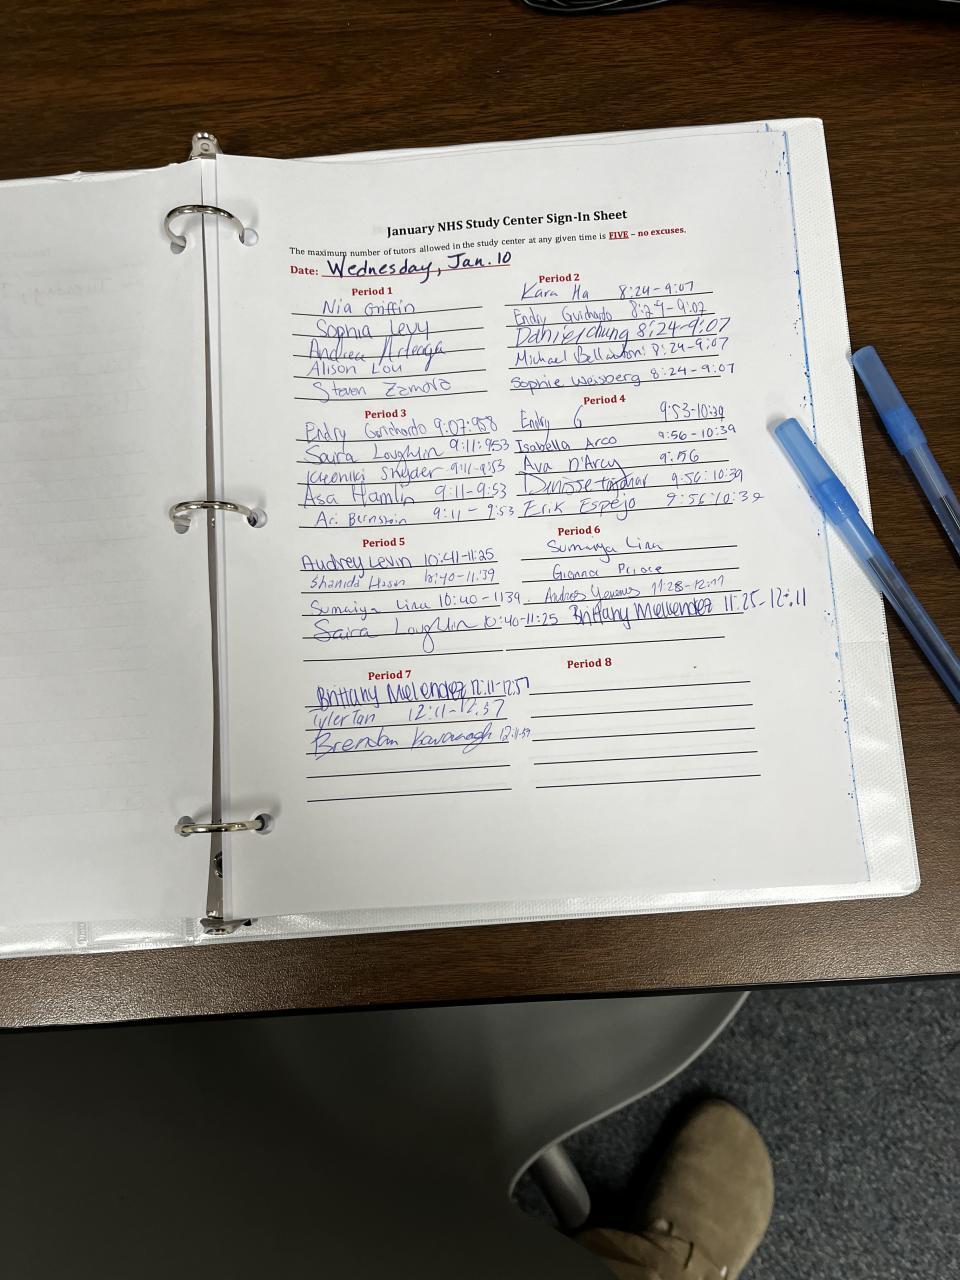 January NHS Study Center Sign-In Sheet
The maximum number of tutors allowed in the study center at any given time is FIVE – no excuses.
Date: Wednesday, Jan. 10
Period 1
Nia Griffin
Sophia Levy
Andrea Arteaga
Alison Lou
Steven Zamora
Period 2
Kara Ha 8:24-9:07
Endry Guichardo 8:24-9:07
Daniel Chung 8:24-9:07
Michael 8:24-9:07
Sophie Weisberg 8:24-9:07
Period 3
Endry Guichardo 9:07:958
Saira Loughlin 9:11:953
Snyder 9:11-9:53
Asa Hamlin 9:11-9:53
Ari Bernstein 9:11-9:53
Period 4
Endry G 9:53-10:39
Isabella Arco 9:56-10:39
Ava D'Arcy 9:56
9:56:10:39
Erik Espejo 9:56:10:39
Period 5
Audrey Levin 10:41-11:25
Shanida
Sumaiya Lina 10:40-1139
Saira Loughlin 10:40-11:25
Period 6
Sumaiya Lina
Gianna
Andres 11:28-12:11
Brittany Melendez 11:25-12:11
Period 7
Brittany Melendez 12:11-12:57
Tyler Tan 12:11-12:57
Brendan Kavanagh
Period 8